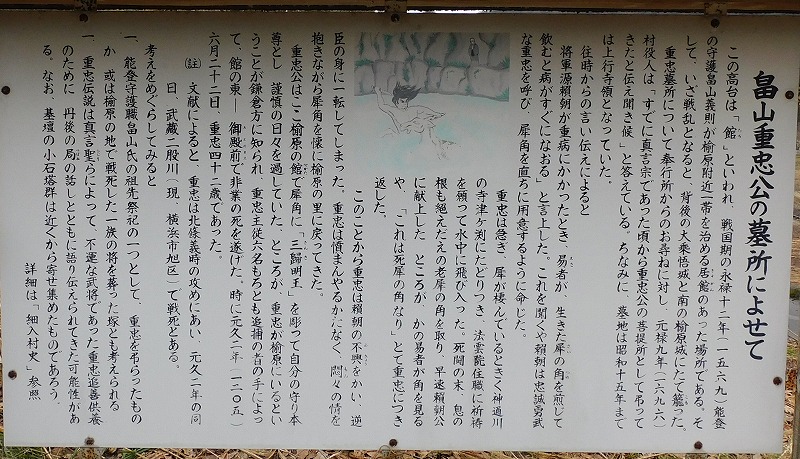 畠山重忠公の墓所によせて
この高台は「館」といわれ、戦国期の永禄十二年（一五六九）能登
の守護畠山義則が楡原附近一帯を治める居館のあった場所である。そ
して、いざ戦乱となると、背後の大乗悟城と南の楡原城にたて籠った。
重忠墓所について奉行所からのお尋ねに対し、元禄九年（一六九六）
村役人は「すでに真言宗であった頃から重忠公の菩提所として弔って
きたと伝え聞き候」と答えている。ちなみに、墓地は昭和十五年まで
は上行寺領となっていた。
往時からの言い伝えによると
将軍源頼朝が重病にかかったとき、易者が、生きた犀の角を煎じて
飲むと病がすぐになおる」と言上した。これを聞くや頼朝は忠誠勇武
な重忠を呼び、犀角を直ちに用意するように命じた。
重忠は急ぎ、犀が棲んでいるときく神通川
の寺津ヶ渕にたどりつき、法雲院住職に祈祷
を願って水中に飛び入った。死闘の末、息の
根も絶えたえの老犀の角を取り、早速頼朝公
に献上した。ところが、かの易者が角を見る
や、「これは死犀の角なり」とて重忠につき
返した。
このことから重忠は頼朝の不興をかい、逆
臣の身に一転してしまった。重忠は憤まんやるかたなく、悶々の情を
抱きながら犀角を懐に楡原の里に戻ってきた。
重忠公はここ楡原の館で犀角に「三帰明王」を彫って自分の守り本
尊とし、謹慎の日々を過していた。ところが、重忠が楡原にいるとい
うことが鎌倉方に知られ、重忠主従六名もろとも追捕の者の手によっ
て、館の東—御殿前で非業の死を遂げた。時に元久二年（一二〇五）
六月二十二日、重忠四十二歳であった。
（註）文献によると、重忠は北條義時の攻めにあい、元久二年の同
日、武蔵二股川（現、横浜市旭区）で戦死とある。
考えをめぐらしてみると
一、能登守護職畠山氏の祖先祭祀の一つとして、重忠を弔らったもの
か、或は楡原の地で戦死した一族の将を葬った塚とも考えられる
一、重忠伝説は真言聖らによって、不運な武将であった重忠追善供養
のために、丹後の局の話しとともに語り伝えられてきた可能性があ
る。なお、墓壇の小石塔群は近くから寄せ集めたものであろう。
詳細は「細入村史」参照